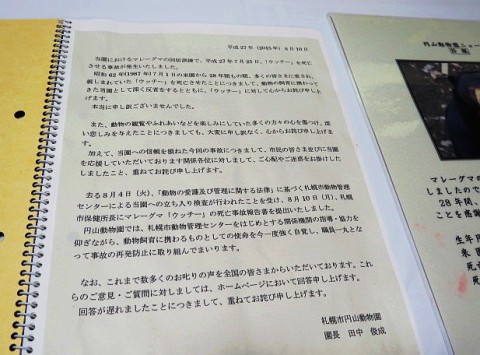 平成27年（2015年）8月10日
当園におけるマレーグマの同居訓練で、平成27年7月25日、「ウッチー」を死亡
させる事故が発生いたしました。
昭和62年（1987年）7月1日の来園から28年間もの間、多くの皆さまに愛され、
親しまれていた「ウッチー」を死亡させたことにつきまして、動物の飼育に携わって
きた当園として深く反省をするとともに、「ウッチー」に対して心からお詫び申し上
げます。
本当に申し訳ございませんでした。
また、動物の観覧やふれあいなどを楽しみにしていた多くの方々の心を傷つけ、深
い悲しみを与えたことにつきましても、大変に申し訳なく、心からお詫び申し上げま
す。
加えて、当園への信頼を損ねた今回の事故につきまして、市民の皆さま並びに当園
を応援していただいております関係各位に対しまして、ご心配やご迷惑をお掛けした
しましたこと、重ねてお詫び申し上げます。
去る8月4日（火）、「動物の愛護及び管理に関する法律」に基づく札幌市動物管理
センターによる当園への立ち入り検査が行われたことを受け、8月10日（月）、札幌
市保健所長にマレーグマ「ウッチー」の死亡事故報告書を提出いたしました。
円山動物園では、札幌市動物管理センターをはじめとする関係機関の指導・協力を
仰ぎながら、動物飼育に携わるものとしての使命を今一度強く自覚し、職員一丸とな
って事故の再発防止に取り組んでまいります。
なお、これまで数多くのお叱りの声を全国の皆さまからいただいております。これ
らのご意見・ご質問に対しましては、ホームページにおいて回答申し上げます。
回答が遅れましたことにつきまして、重ねてお詫び申し上げます。
札幌市円山動物園
園長 田中 俊成
円山動物園ニュー
マレーグマ
しましたので
28年間、
ことを感謝
生年
来園
死亡
死